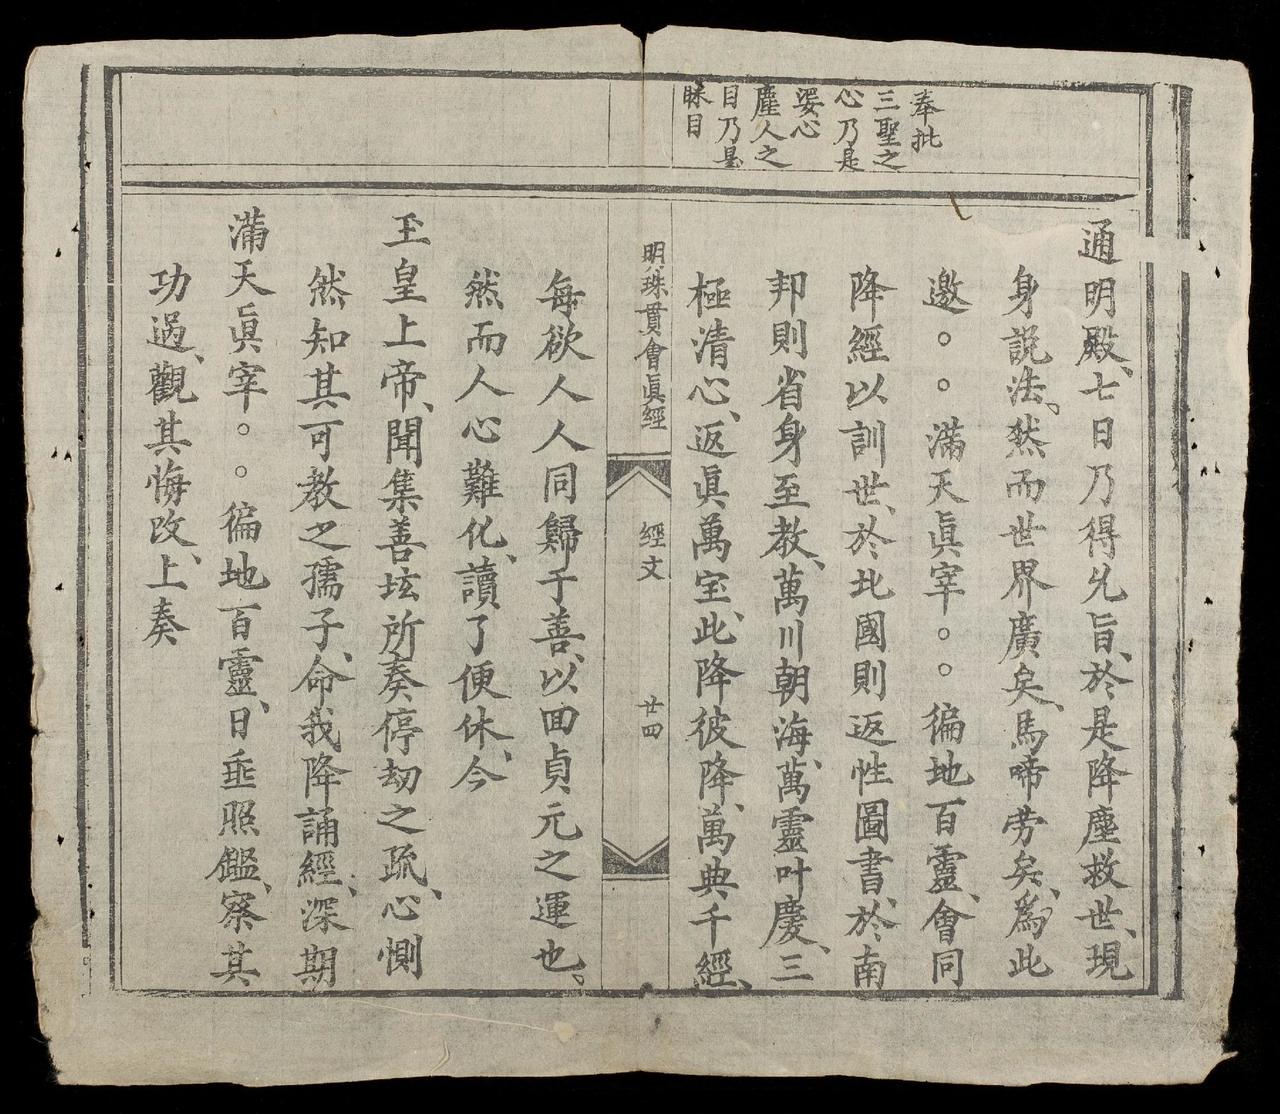 奉批
三聖之
心乃是
婆心
塵人之
目乃是
眯目
通明殿、七日乃得允旨、於是降塵救世、現
身説法。然而世界廣矣、馬啼劳矣、爲此
邀。。滿天眞宰。。徧地百靈、會同
降經以訓世、於北國則返性圖書、於南
邦則省身至教、萬川朝海、萬靈叶慶、三
極清心、返眞萬宝、此降彼降、萬典千經、
明珠貫會眞經
經文
廿四
每欲人人同歸于善、以回貞元之運也。
然而人心難化、讀了便休、今
玉皇上帝、聞集善坛所奏停刼之疏、心惻
然知其可教之孺子、命我降誦經、深期
滿天眞宰。。徧地百靈、日垂照鑑、察其
功過、觀其悔改、上奏